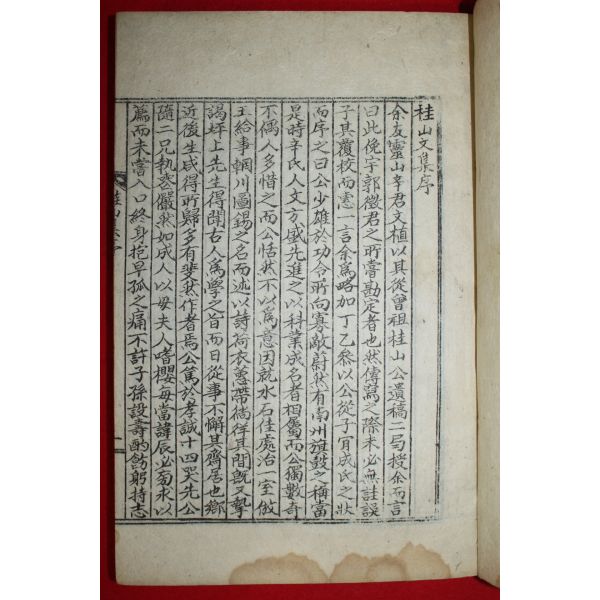 桂山文集序
余友靈山辛君文植以其從曾祖桂山公遺稿二局授余而言
曰此俛宇郭徵君之所嘗勘定者也然傳寫之際未必無註誤
子其覆校而惠一言余爲略加丁乙參以公從子胄成氏之狀
而序之曰公少雄於功令所向寡敵蔚然有南州旗鼓之稱當
是時辛氏人文方盛先進之以科業成名者相屬而公獨數奇
不偶人多惜之而公恬然不以爲意因就水石佳處治一室倣
王給事輞川圖錫之名而述以詩荷衣蕙帶徜徉其間旣又摯
謁坪上先生得聞古人爲學之旨而日從事不懈其齋居也鄕
近後生咸得所歸多有斐然作者焉公篤於孝誠十四哭先公
隨二兄執喪嚴然如成人以母夫人嗜櫻每當諱辰必蒭求以
薦而未嘗入口終身抱早孤之痛不許子孫設壽酌飭躬持志